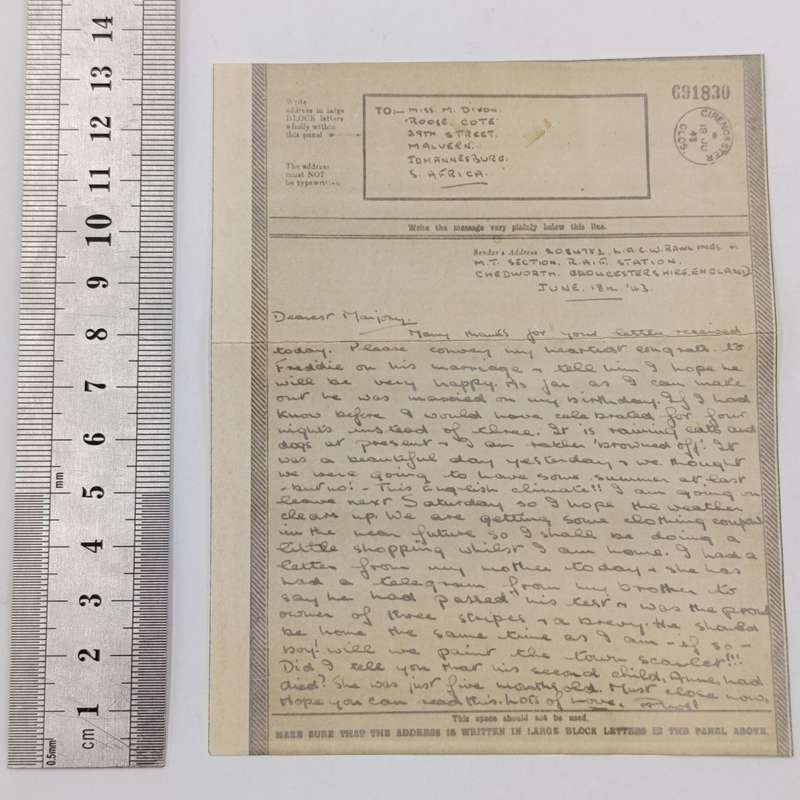 14
13
12
11
10
9
8
7
6
5
4
3
2
1
mm
cm
0.5mm
691830
CIRENCESTER
19 JU
43
GLOS.
Write
address in large
BLOCK letters
wholly within
this panel
The address
must NOT
be typewritten
TO:— MISS. M. DIXON.
'ROOSE COTE'
29TH STREET.
MALVERN.
JOHANNESBURG.
S. AFRICA.
Write the message very plainly below this line.
Sender's Address L.A.C. W. RAWLINGS
M.T. SECTION. R.A.F. STATION.
CHEDWORTH. GLOUCESTERSHIRE. ENGLAND
JUNE. 18th. '43.
Dearest Marjory.
Many thanks for your letter received
today. Please convey my heartiest congrats. to
Freddie on his marriage & tell him I hope he
will be very happy. As far as I can make
out he was married on my birthday. If I had
know before I would have celebrated for four
nights instead of three. It is raining cats and
dogs at present & I am rather 'browned off'. It
was a beautiful day yesterday & we thought
we were going to have some summer at last
- but no! - This English climate!! I am going on
leave next Saturday so I hope the weather
clears up. We are getting some clothing coupons
in the near future so I shall be doing a
little shopping whilst I am home. I had a
letter from my mother today & she has
had a telegram from my brother to
say he had passed his test & was the proud
owner of three stripes & a brevy. He should
be home the same time as I am - if so -
boy! will we paint the town scarlet!!!
Did I tell you that his second child, Anne, had
died? She was just five months old. Must close now,
Hope you can read this. Lots of love.
This space should not be used.
MAKE SURE THAT THE ADDRESS IS WRITTEN IN LARGE BLOCK LETTERS IN THE PANEL ABOVE.